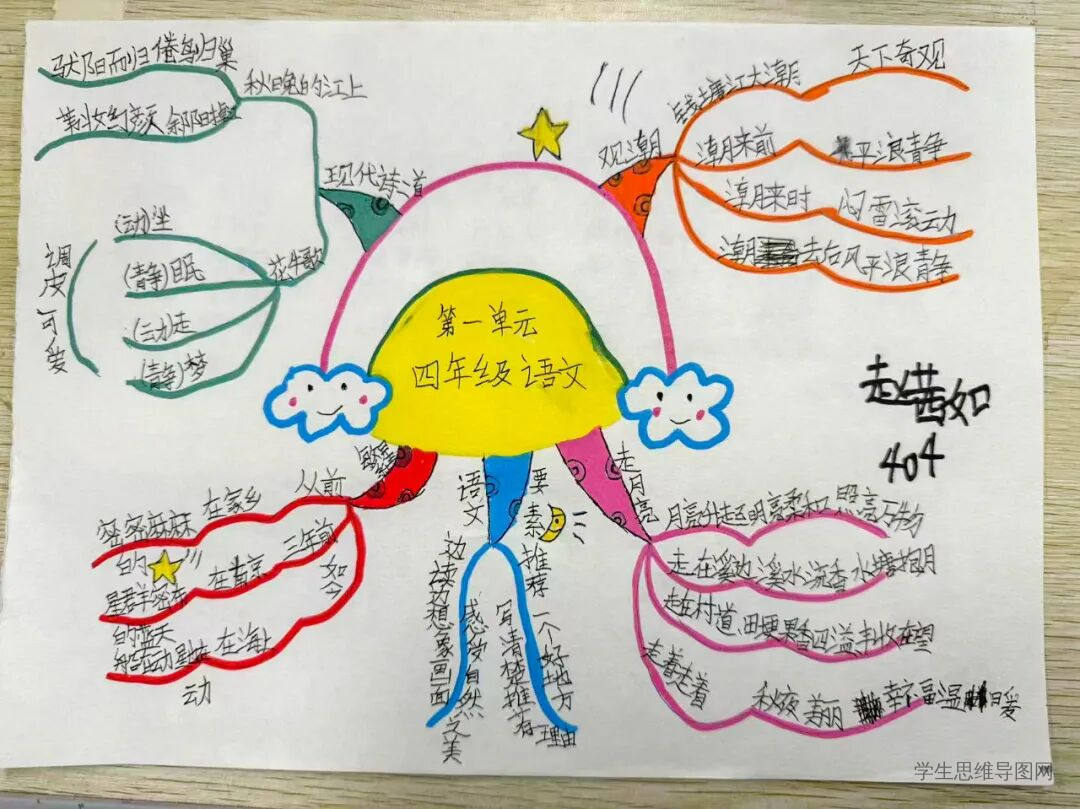 第一单元
四年级语文
观潮
钱塘江大潮
天下奇观
潮来前
平浪青争
潮来时
闷雷滚动
潮
去后风平浪青争
现代诗二首
秋晚的江上
驮阳而归 倦鸟归巢
斜阳
花牛歌
(动)坐
(青争)眠
(动)走
(青争)梦
调皮可爱
繁星
从前
在家乡
密密麻麻
的
三年前
在南京
星群密布
的蓝天
如今
在海上
动
语文要素
边读边想象画面
感受自然之美
推荐一个好地方
写清楚推荐理由
走月亮
月亮升起 明亮柔和 照亮万物
走在溪边 溪水流香 水塘抱月
走在村道 田埂 果香四溢 丰收在望
走着走着
秋夜美丽
幸福温暖
赵茜如
404
学生思维导图网